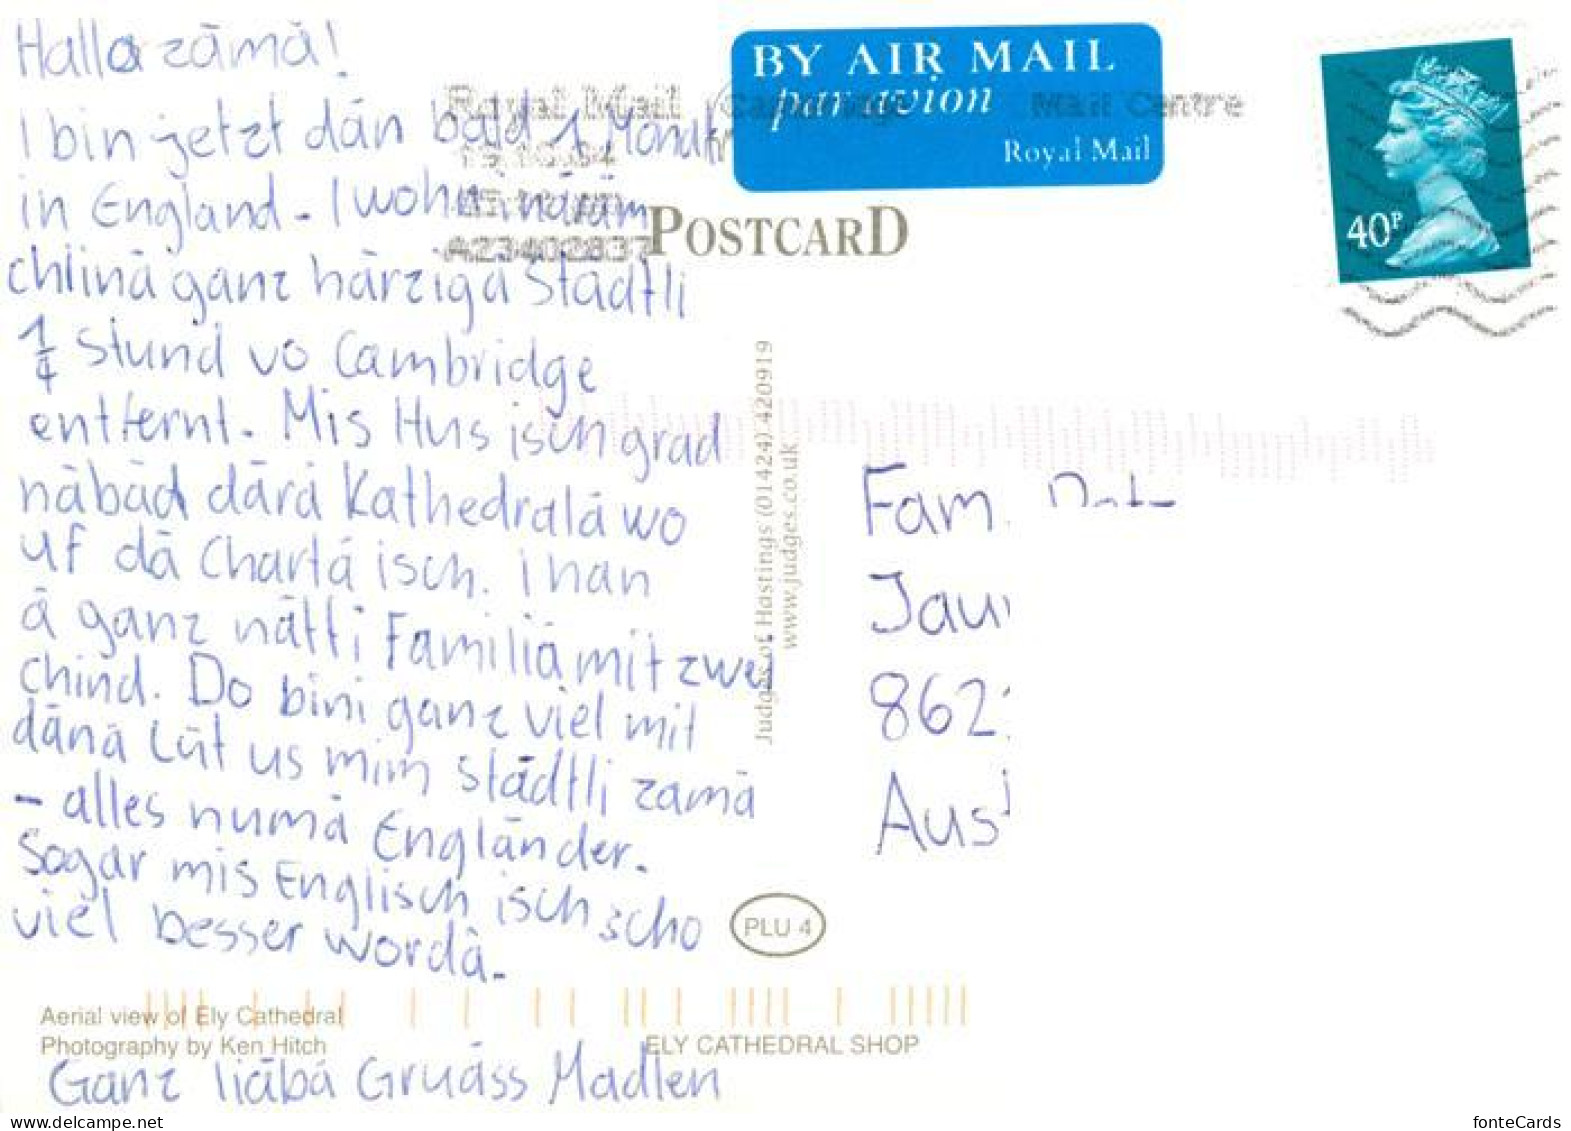 Hallo zämä!
I bin jetzt dän bald 1 Monat
in England - I wohn inäräm
chlinä ganz härziga Städtli
1/4 Stund vo Cambridge
entfernt. Mis Hus isch grad
näbäd därä Kathedralä wo
uf dä Chartä isch. I han
ä ganz nätti Familiä mit zwei
Chind. Do bini ganz viel mit
dänä Lüt us mim Städtli zämä
- alles numä Engländer.
Sogar mis Englisch isch scho
viel besser wordä.
Ganz liäbä Grüäss Madlen
BY AIR MAIL
par avion
Royal Mail
Royal Mail Cambridge Mail Centre
A23402837
POSTCARD
40P
Judges of Hastings (01424) 420919
www.judges.co.uk
Fam.
862
PLU 4
Aerial view of Ely Cathedral
Photography by Ken Hitch
ELY CATHEDRAL SHOP
www.delcampe.net
fonteCards